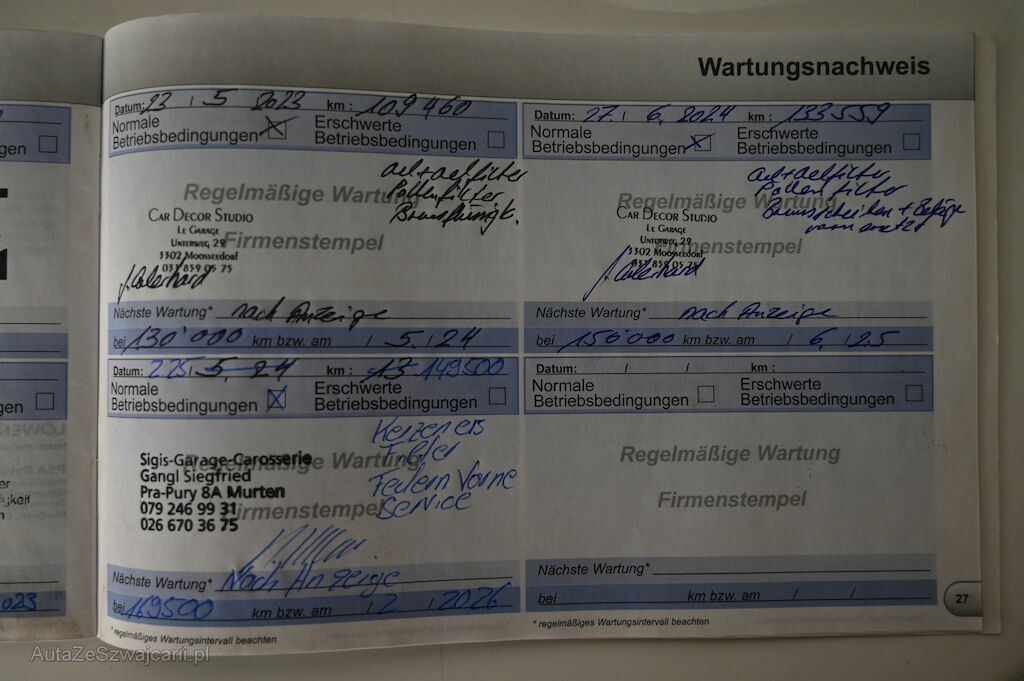 Wartungsnachweis
Datum: 23 / 5 2023 km : 109460
Normale Betriebsbedingungen
Erschwerte Betriebsbedingungen
Oel + Oelfilter
Pollenfilter
Regelmäßige Wartung
CAR DECOR STUDIO
LE GARAGE
UNTERWEG 29
3302 MOOSSEEDORF
031 859 05 75
Firmenstempel
Nächste Wartung* nach Anzeige
bei 130'000 km bzw. am / 5 / 24
Datum: 27 / 6. 2024 km : 133559
Normale Betriebsbedingungen
Erschwerte Betriebsbedingungen
Oel + Oelfilter
Pollenfilter
Bremsscheiben + Beläge
vorn ersetzt
Regelmäßige Wartung
CAR DECOR STUDIO
LE GARAGE
UNTERWEG 29
3302 MOOSSEEDORF
031 859 05 75
Firmenstempel
Nächste Wartung* nach Anzeige
bei 150'000 km bzw. am / 6 / 25
Datum: 5. 24 km : 13 149500
Normale Betriebsbedingungen
Erschwerte Betriebsbedingungen
Filter
Federn Vorne
Service
Regelmäßige Wartung
Sigis-Garage-Carosserie
Gangl Siegfried
Pra-Pury 8A Murten
079 246 99 31
026 670 36 75
Firmenstempel
Nächste Wartung* Nach Anzeige
bei 169500 km bzw. am / 2 / 2026
* regelmäßiges Wartungsintervall beachten
Datum: / / km :
Normale Betriebsbedingungen
Erschwerte Betriebsbedingungen
Regelmäßige Wartung
Firmenstempel
Nächste Wartung*
bei km bzw. am / /
* regelmäßiges Wartungsintervall beachten
27
AutaZeSzwajcarii.pl